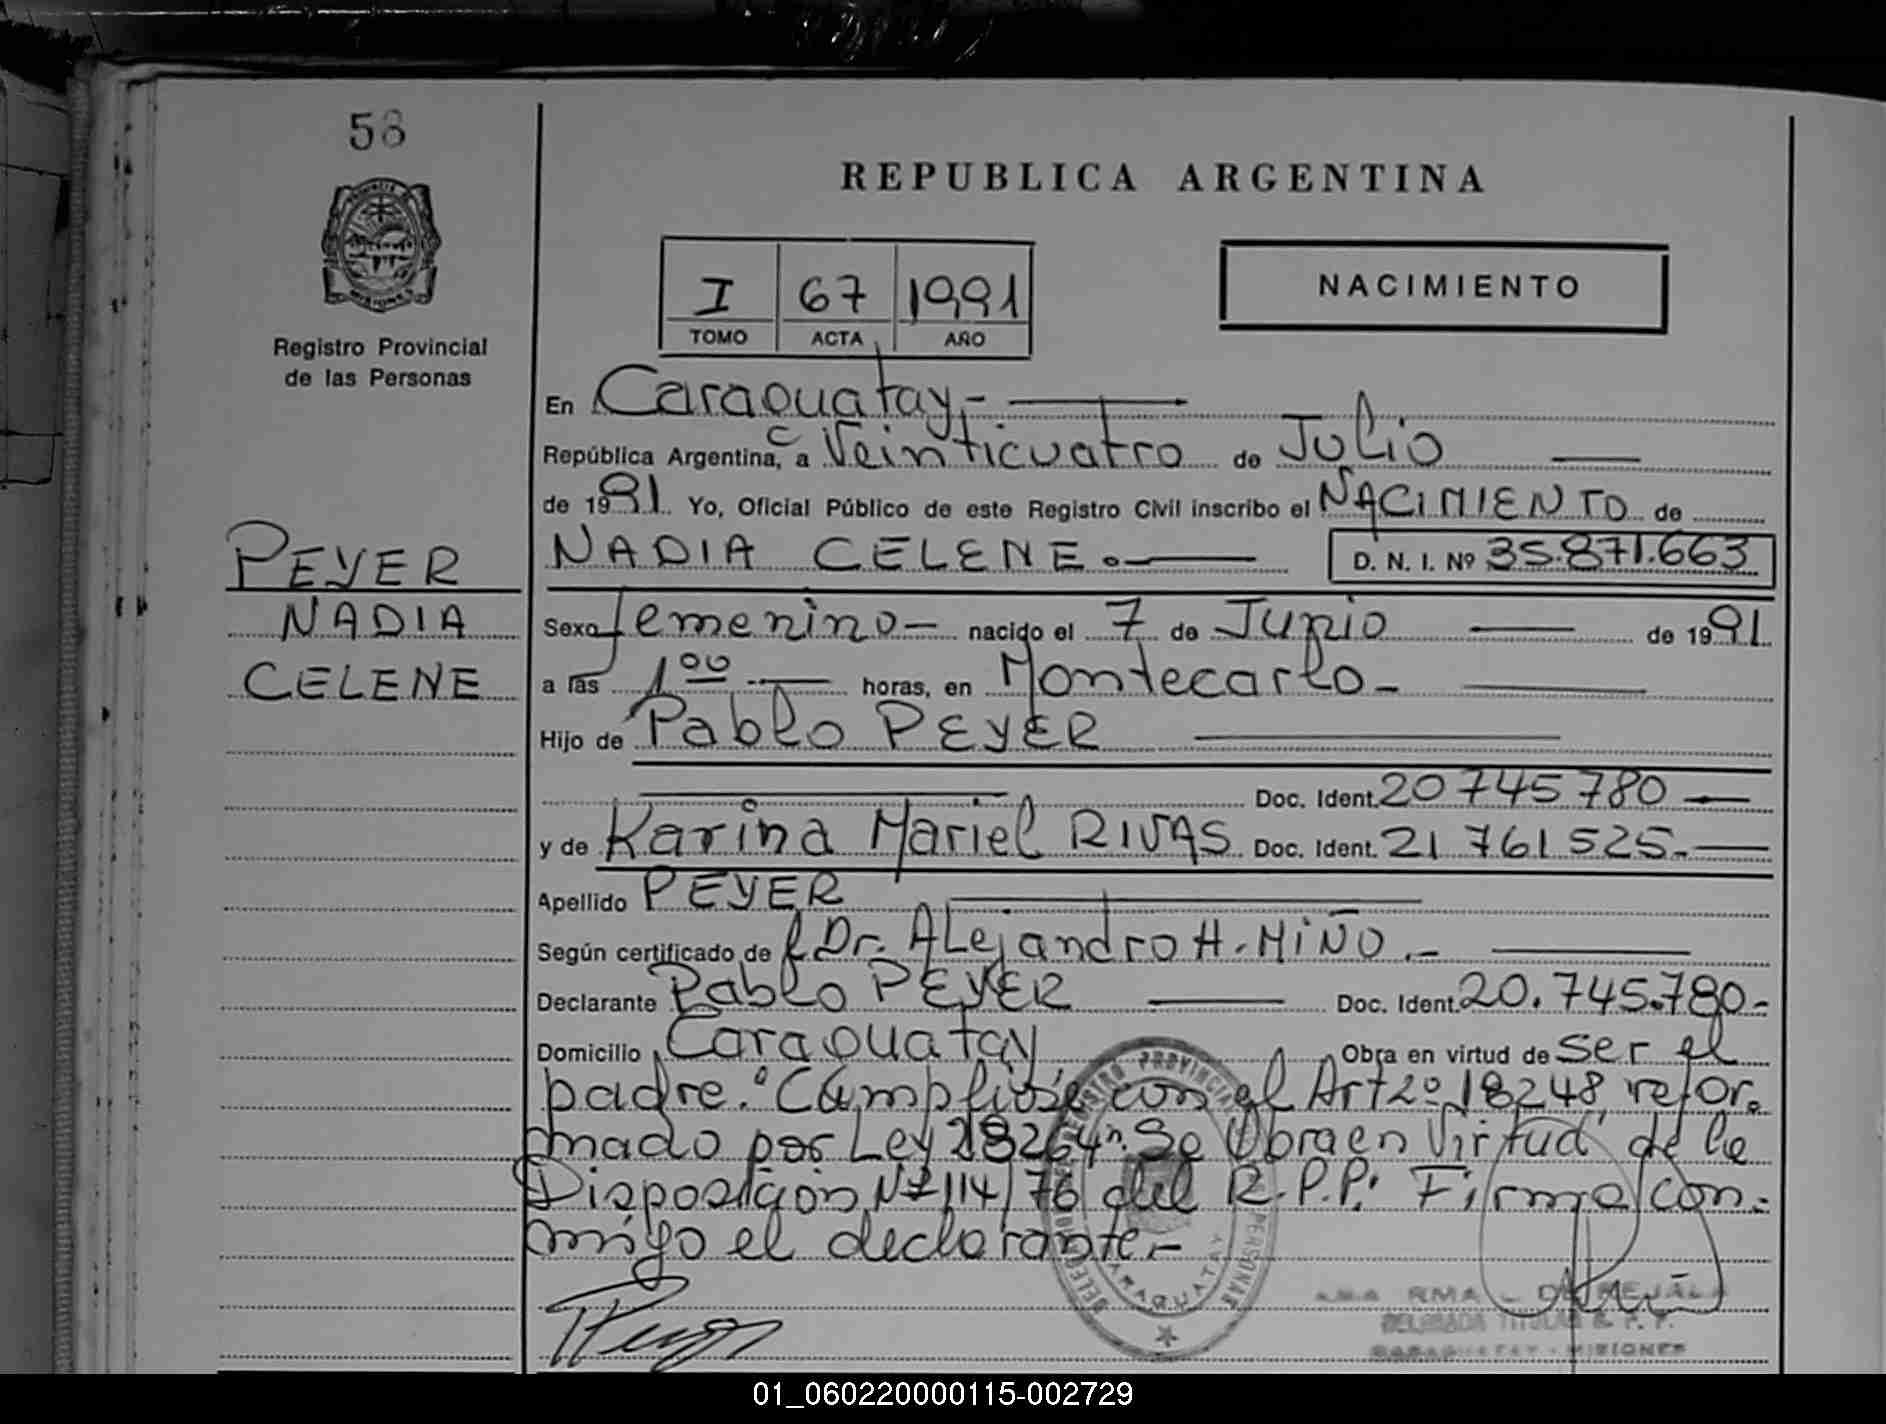 58
REPUBLICA ARGENTINA
I 67 1991
TOMO ACTA AÑO
NACIMIENTO
MISIONES
Registro Provincial
de las Personas
En Caraguatay,-
República Argentina, a Veinticuatro de Julio
de 1991. Yo, Oficial Público de este Registro Civil inscribo el NACIMIENTO de
NADIA CELENE.- D. N. I. Nº 35.871.663
PEYER
NADIA
CELENE
Sexo femenino- nacido el 7 de Junio de 1991.
a las 1 00 horas, en Montecarlo-
Hijo de Pablo PEYER
Doc. Ident. 20 745 780
y de Karina Mariel RIVAS Doc. Ident. 21 761 525.-
Apellido PEYER
Según certificado de Dr. ALejandro H. MIÑO.-
Declarante Pablo PEYER Doc. Ident. 20.745.780-
Domicilio Caraguatay Obra en virtud de ser el
padre. "Cumplióse con el Art 2º 18248, refor.
mado por Ley Se Obra en Virtud de la
Disposición Nº 114/76 del R.P.P. Firma con-
migo el declarante.-
REGISTRO PROVINCIAL
CARAGUATAY
DELEGADA TITULAR R. P. P.
CARAGUATAY - MISIONES
01_060220000115-002729